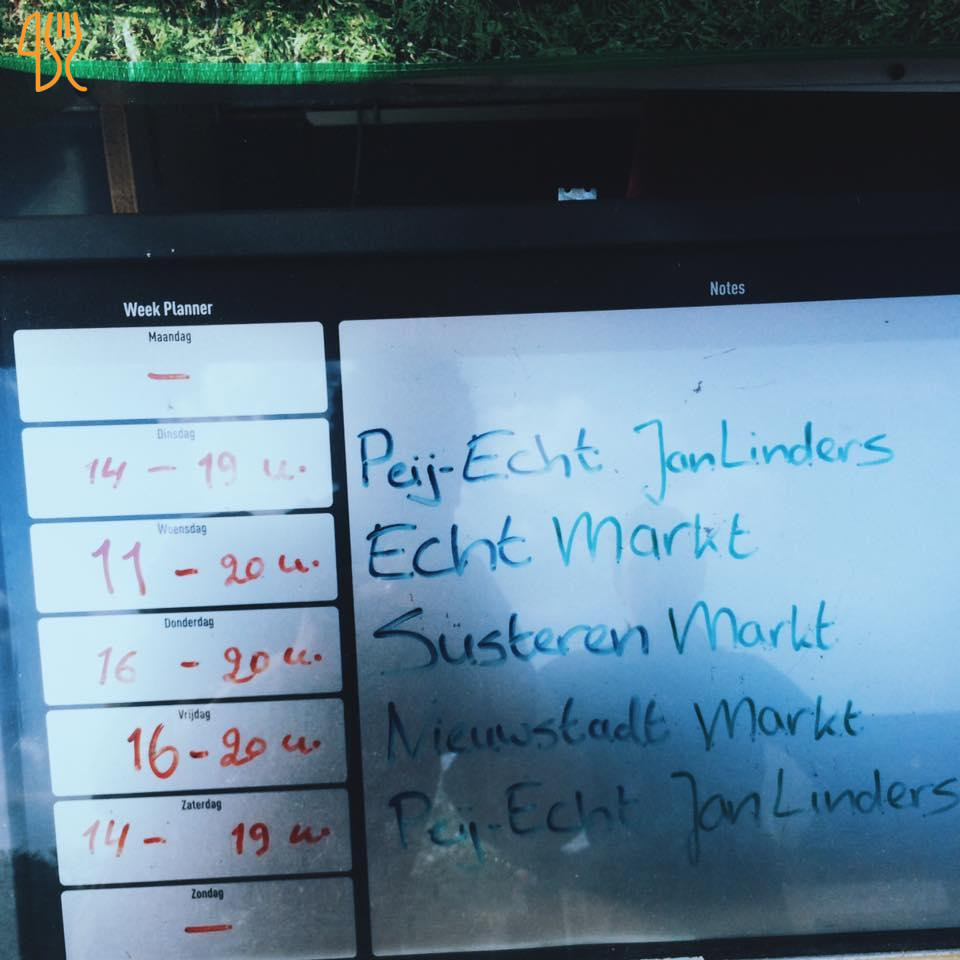 Week Planner
Notes
Maandag
-
Dinsdag
14 - 19 u.
Peij-Echt Jan Linders
Woensdag
11 - 20 u.
Echt Markt
Donderdag
16 - 20 u.
Süsteren Markt
Vrijdag
16 - 20 u.
Nieuwstadt Markt
Zaterdag
14 - 19 u.
Peij-Echt Jan Linders
Zondag
-